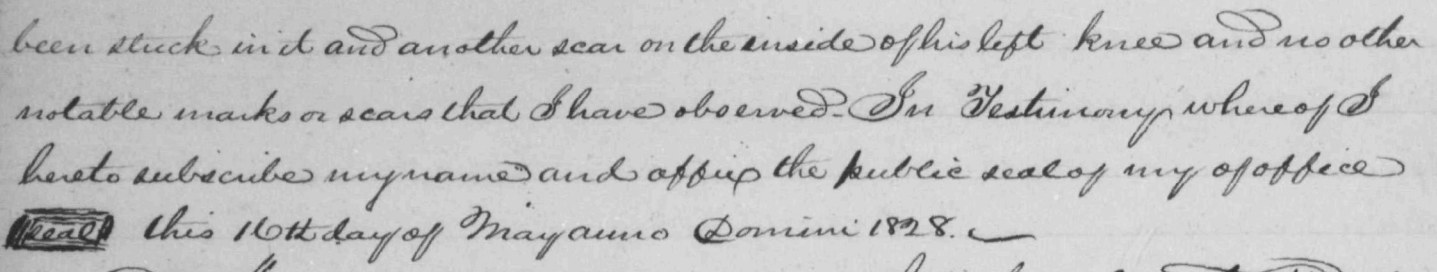 been stuck in it and another scar on the inside of his left knee and no other
notable marks or scars that I have observed. In Testimony where of I
hereto subscribe my name and affix the public seal of my of office
seal this 16th day of May anno Domini 1828.